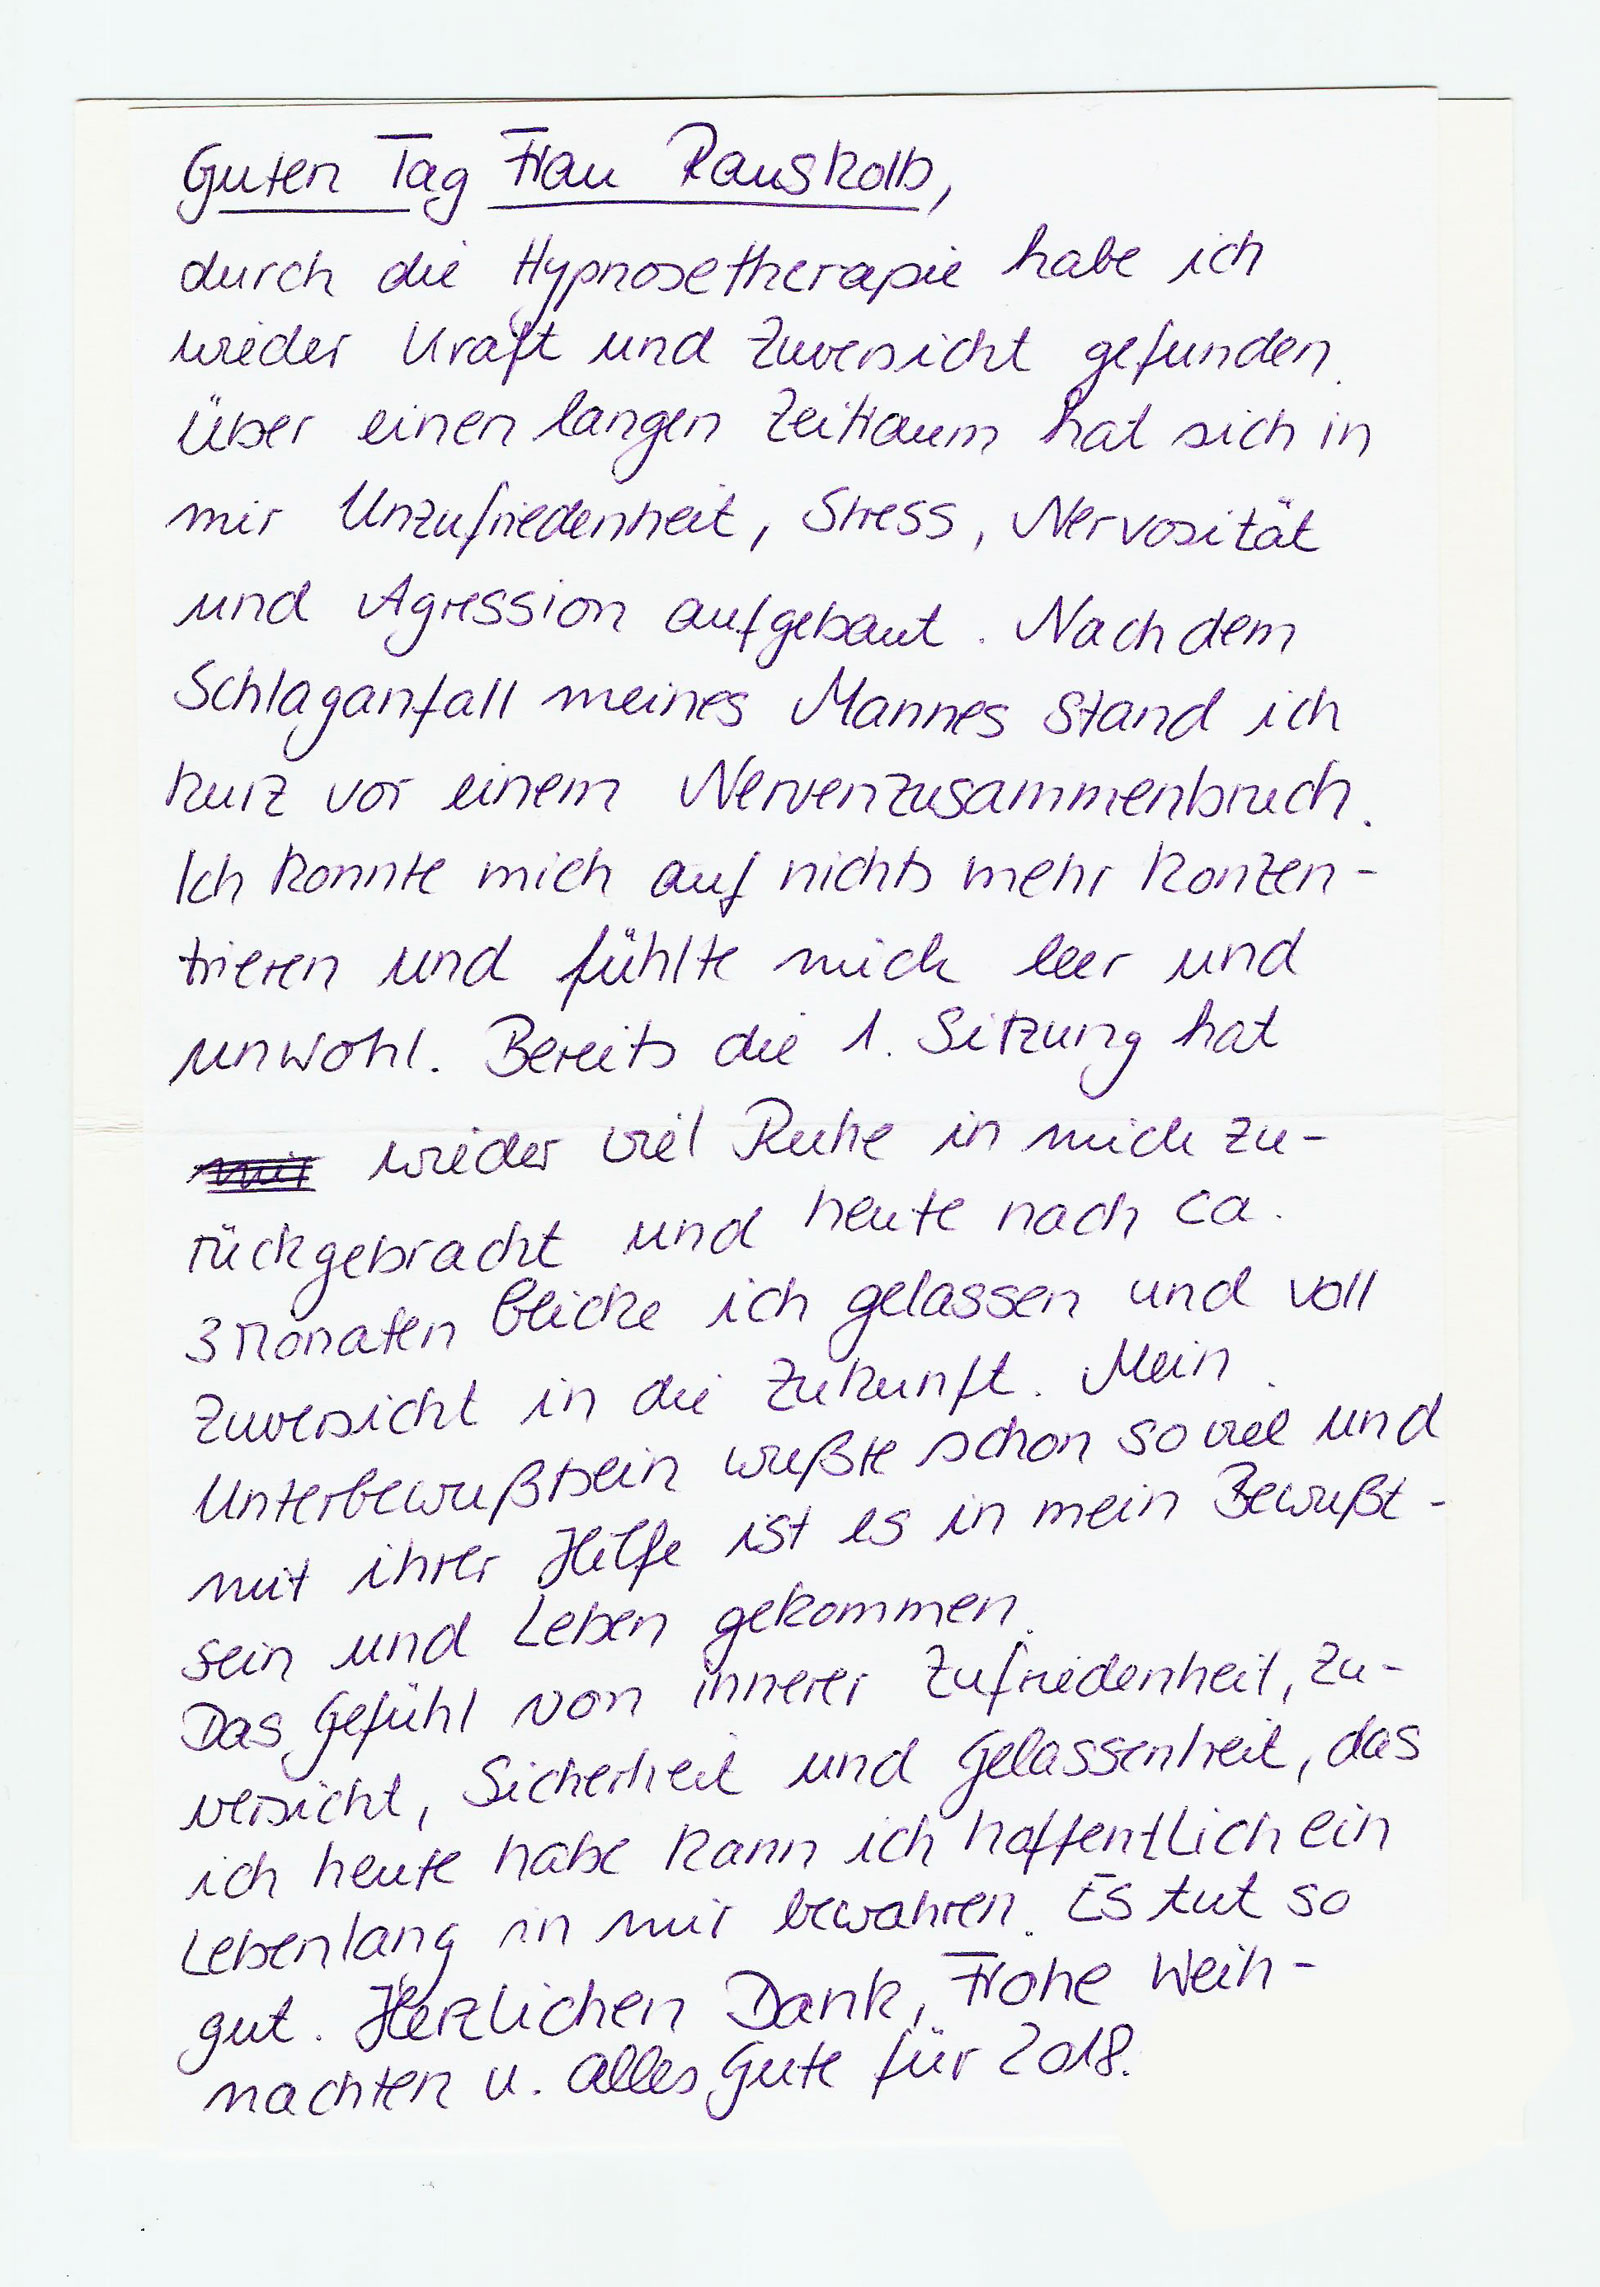 Guten Tag Frau Rauskolb,
durch die Hypnosetherapie habe ich
wieder Kraft und Zuversicht gefunden.
Über einen langen Zeitraum hat sich in
mir Unzufriedenheit, Stress, Nervosität
und Agression aufgebaut. Nach dem
Schlaganfall meines Mannes stand ich
kurz vor einem Nervenzusammenbruch.
Ich konnte mich auf nichts mehr konzen-
trieren und fühlte mich leer und
unwohl. Bereits die 1. Sitzung hat
mir wieder viel Ruhe in mich zu-
rückgebracht und heute nach ca.
3 Monaten blicke ich gelassen und voll
Zuversicht in die Zukunft. Mein
Unterbewußtsein wußte schon so viel und
mit ihrer Hilfe ist es in mein Bewußt-
sein und Leben gekommen.
Das Gefühl von innerer Zufriedenheit, Zu-
versicht, Sicherheit und Gelassenheit, das
ich heute habe kann ich hoffentlich ein
Lebenlang in mir bewahren. Es tut so
gut. Herzlichen Dank, Frohe Weih-
nachten u. alles Gute für 2018.